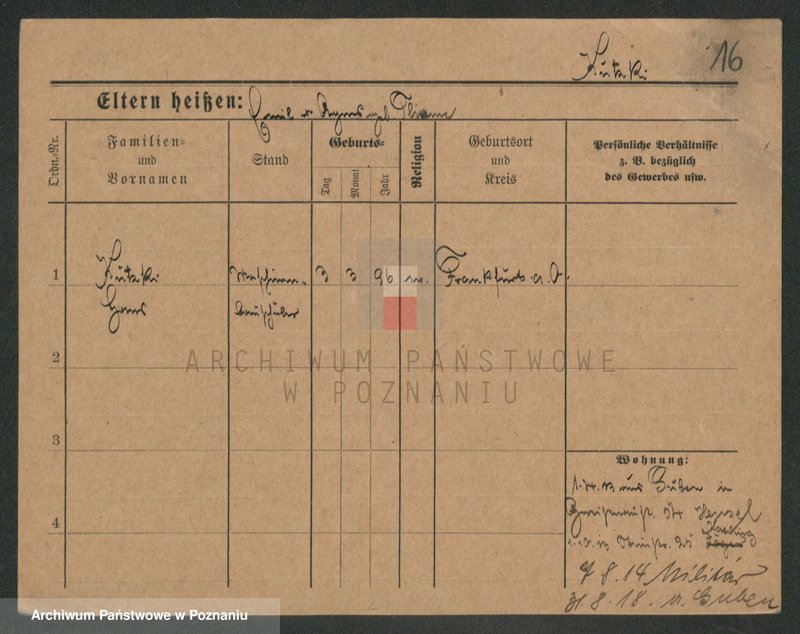 Kutzki 16
Eltern heißen: Emil u Agnes geb Thieme
Ordn.-Nr.
Familien-
und
Vornamen
Stand
Geburts-
Tag
Monat
Jahr
Religion
Geburtsort
und
Kreis
Persönliche Verhältnisse
z. B. bezüglich
des Gewerbes usw.
1 Kutzki Maschinen- 3 3 96 ev. Frankfurt a. O.
Hans bauschüler
2
3
4
Wohnung:
aus Guben in
Hensel
7 8. 14 Militär
31.8.18. n. Guben
ARCHIWUM PAŃSTWOWE
W POZNANIU
Archiwum Państwowe w Poznaniu